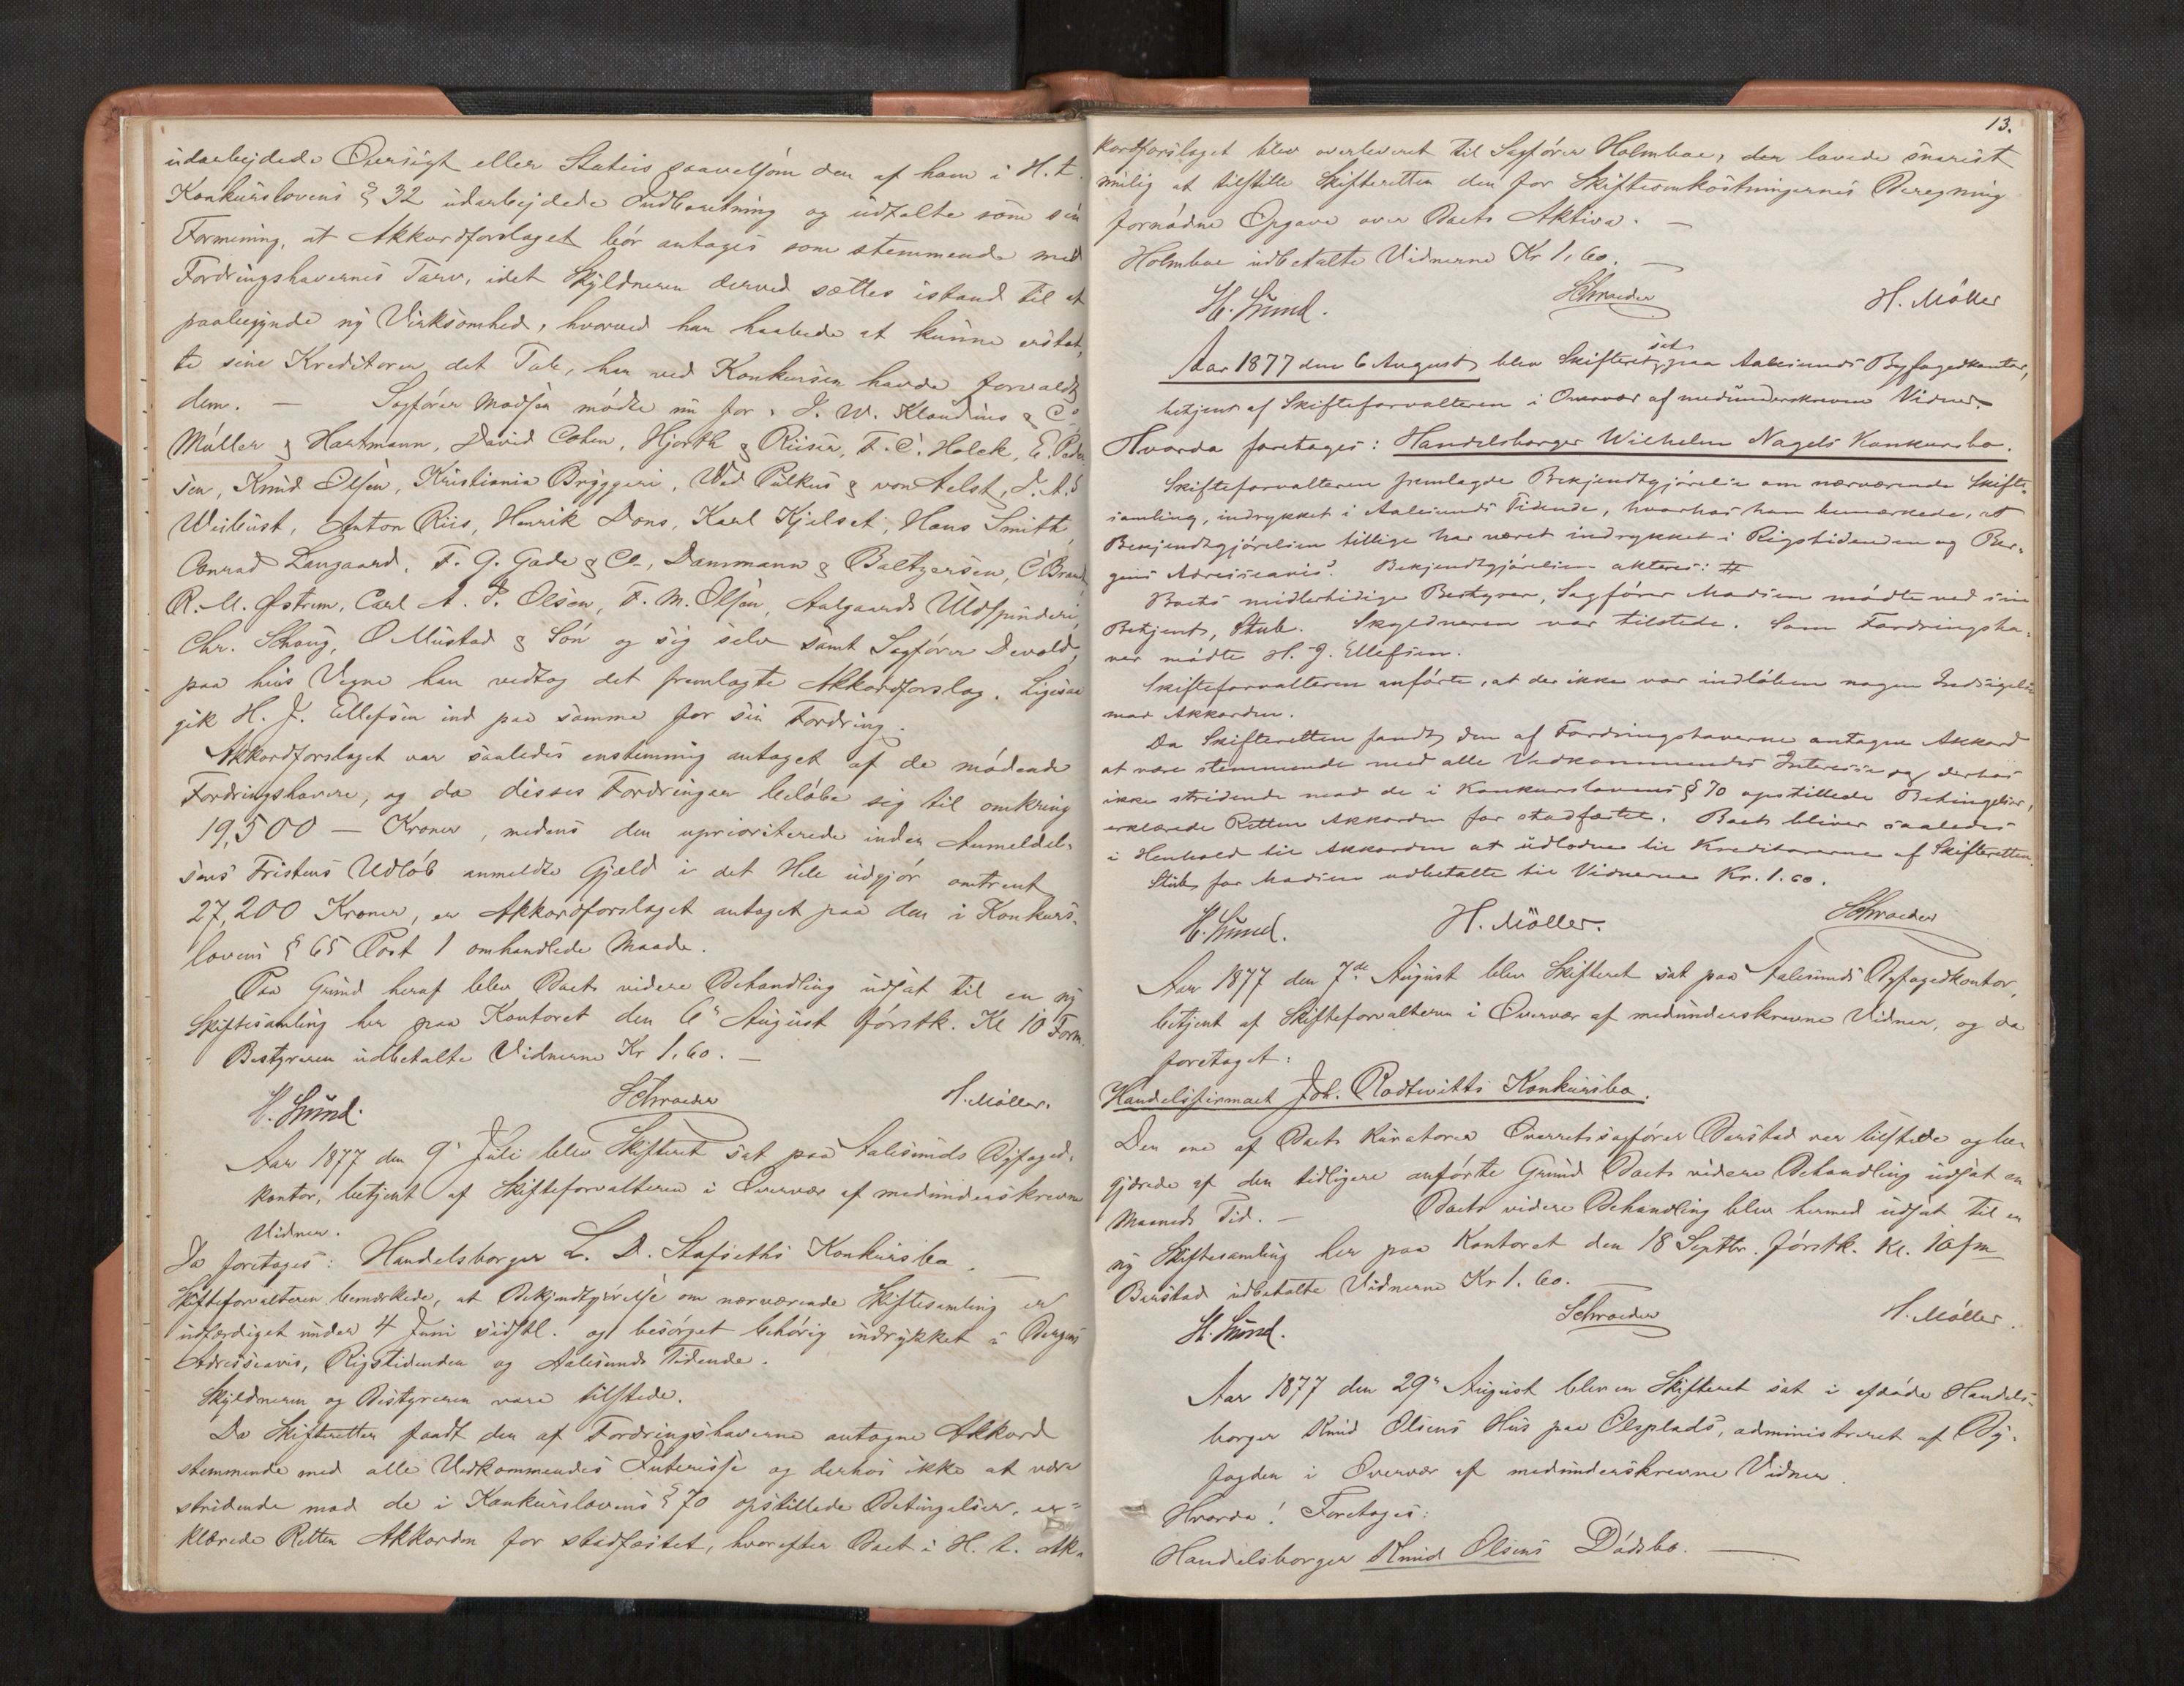 udarbejdede Oversigt eller Status saavelsom den af ham i H. t.
Konkurslovens § 32 udarbejdede Indberetning og udtalte som sin
Formening, at Akkordforslaget bør antages som stemmende med
Fordringshavernes Tarv, idet Skyldneren derved sættes istand til at
paabegynde ny Virksomhed, hvorved han haabede at kunne erstat-
te sine Kreditorer det Tab, han ved Konkursen havde forvoldt
dem. — Sagfører Madsen mødte nu for: J. W. Klaudius & Co
Müller & Hartmann, David Cohen, Hjorth & Riise, F. C. Holck, E. Peder
sen, Knud Olsen, Kristiania Bryggeri, Wed Pulkus & von Aelst, J. A. S
Weibust, Anton Riis, Henrik Dons, Karl Kjelset, Hans Smith,
Conrad Langaard, F. G. Gade & Cn, Dammann & Baltzersen, C Brand,
R. U. Østrem, Carl A. P. Olsen, F. M. Olsen, Aalgaards Uldspinderi,
Chr. Schoug, O Mustad & Søn og sig selv samt Sagfører Devold,
paa hvis Vegne han vedtog det fremlagte Akkordforslag. Ligesaa
gik H. J. Ellefsen ind paa samme for sin Fordring.
Akkordforslaget var saaledes enstemmig antaget af de mødende
Fordringshavere, og da disses Fordringer beløbe sig til omkring
19,500 — Kroner, medens den uprioriterede inden Anmeldel-
sens Fristens Udløb anmeldte Gjæld i det Hele udgjør omtrent
27,200 Kroner, er Akkordforslaget antaget paa den i Konkurs-
lovens § 65 Post 1 omhandlede Maade.
Paa Grund heraf blev Boets videre Behandling udsat til en ny
Skiftesamling her paa Kontoret den 6te August førstk. Kl 10 Form.
Bestyreren udbetalte Vidnerne Kr 1.60. —
H. Smmd. Schrøder H. Møller.
Aar 1877 den 9de Juli blev Skifteret sat paa Aalesunds Byfoged-
kontor, betjent af Skifteforvalteren i Overvær af medunderskrevne
Vidner.
Da foretoges: Handelsborger L. D. Stafseths Konkursbo. —
Skifteforvalteren bemærkede, at Bekjendtgjørelse om nærværende Skiftesamling er
udfærdiget under 4 Juni sidstl. og besørget behørig indrykket i Bergens
Adresseavis, Rigstidenden og Aalesunds Tidende.
Skyldneren og Bestyreren vare tilstede.
Da Skifteretten fandt den af Fordringshaverne antagne Akkord
stemmende med alle Vedkommendes Interesse og derhos ikke at være
stridende mod de i Konkurslovens § 70 opstillede Betingelser, er-
klærede Retten Akkorden for stadfæstet, hvorefter Boet i H. t. Ak-
13.
kordforslaget blev overleveret til Sagfører Holmboe, der lovede snarest
mulig at tilstille Skifteretten den for Skifteomkostningernes Beregning
fornødne Opgave over Boets Aktiva. —
Holmboe udbetalte Vidnerne Kr 1.60. —
H. Smmd. Schrøder H. Møller
Aar 1877 den 6 August blev Skifteret sat paa Aalesunds Byfogedkontor,
betjent af Skifteforvalteren i Overvær af medunderskrevne Vidner.
Hvorda foretoges: Handelsborger Wilhelm Nagels Konkursbo.
Skifteforvalteren fremlagde Bekjendtgjørelse om nærværende Skifte-
samling, indrykket i Aalesunds Tidende, hvorhos han bemærkede, at
Bekjendtgjørelsen tillige har været indrykket i Rigstidenden og Ber-
gens Adresseavis. Bekjendtgjørelsen akteres: #
Boets midlertidige Bestyrer, Sagfører Madsen mødte ved sin
Betjent, Stub. Skyldneren var tilstede. Som Fordringsha-
ver mødte H. J. Ellefsen.
Skifteforvalteren anførte, at der ikke var indløben nogen Indsigelse
mod Akkorden.
Da Skifteretten fandt den af Fordringshaverne antagne Akkord
at være stemmende med alle Vedkommendes Interesse og derhos
ikke stridende mod de i Konkurslovens § 70 opstillede Betingelser,
erklærede Retten Akkorden for stadfæstet. Boet bliver saaledes
i Henhold til Akkorden at udlodne til Kreditorerne af Skifteretten.
Stub for Madsen udbetalte til Vidnerne Kr. 1.60.
H. Smmd. H. Møller. Schrøder
Aar 1877 den 7de August blev Skifteret sat paa Aalesunds Byfogedkontor,
betjent af Skifteforvalteren i Overvær af medunderskrevne Vidner, og da
foretaget:
Handelsfirmaet Joh. Rodtwitts Konkursbo.
Den ene af Boets Kuratorer Overretssagfører Barstad var tilstede og be-
gjærede af den tidligere anførte Grund Boets videre Behandling udsat en
Maaneds Tid. — Boets videre Behandling blev hermed udsat til en
ny Skiftesamling her paa Kontoret den 18 Septbr. førstk. Kl. 10 fm
Barstad udbetalte Vidnerne Kr 1.60. —
H. Smmd. Schrøder H. Møller.
Aar 1877 den 29de August blev en Skifteret sat i afdøde Handels-
borger Knud Olsens Hus paa Olsplads, administreret af By-
fogden i Overvær af medunderskrevne Vidner.
Hvorda! Foretoges:
Handelsborger Knud Olsens Dødsbo. —